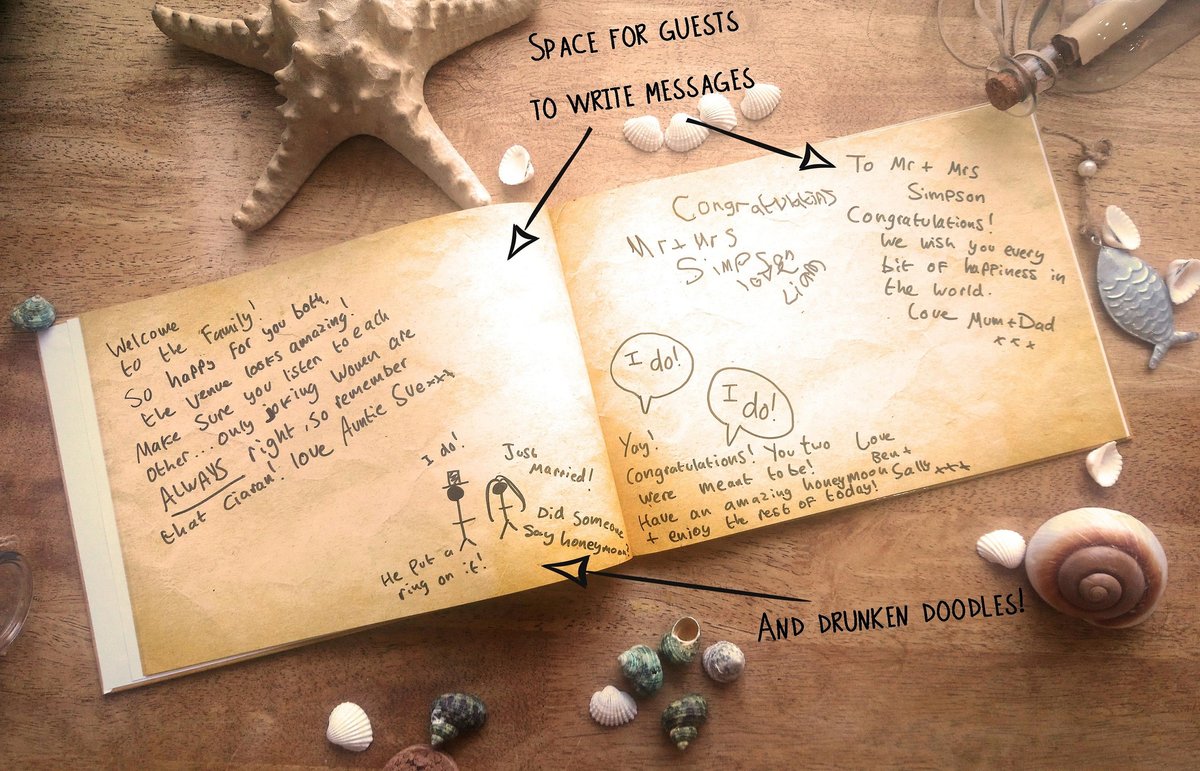 SPACE FOR GUESTS
TO WRITE MESSAGES
Welcome
to the Family!
So happy for you both,
the venue looks amazing!
Make sure you listen to each
other... only joking Women are
ALWAYS right, so remember
that Ciaran! love Auntie Sue xxx
I do!
Just
married!
Did someone
say honeymoon?
He put a
ring on it!
Congratulations
Mr + Mrs
Simpson
love
Liam
To Mr + Mrs
Simpson
Congratulations!
We wish you every
bit of happiness in
the world.
Love Mum + Dad
x x x
I do!
I do!
Yay!
Congratulations! You two
were meant to be!
Have an amazing honeymoon
+ enjoy the rest of today!
Love
Ben +
Sally xxx
AND DRUNKEN DOODLES!